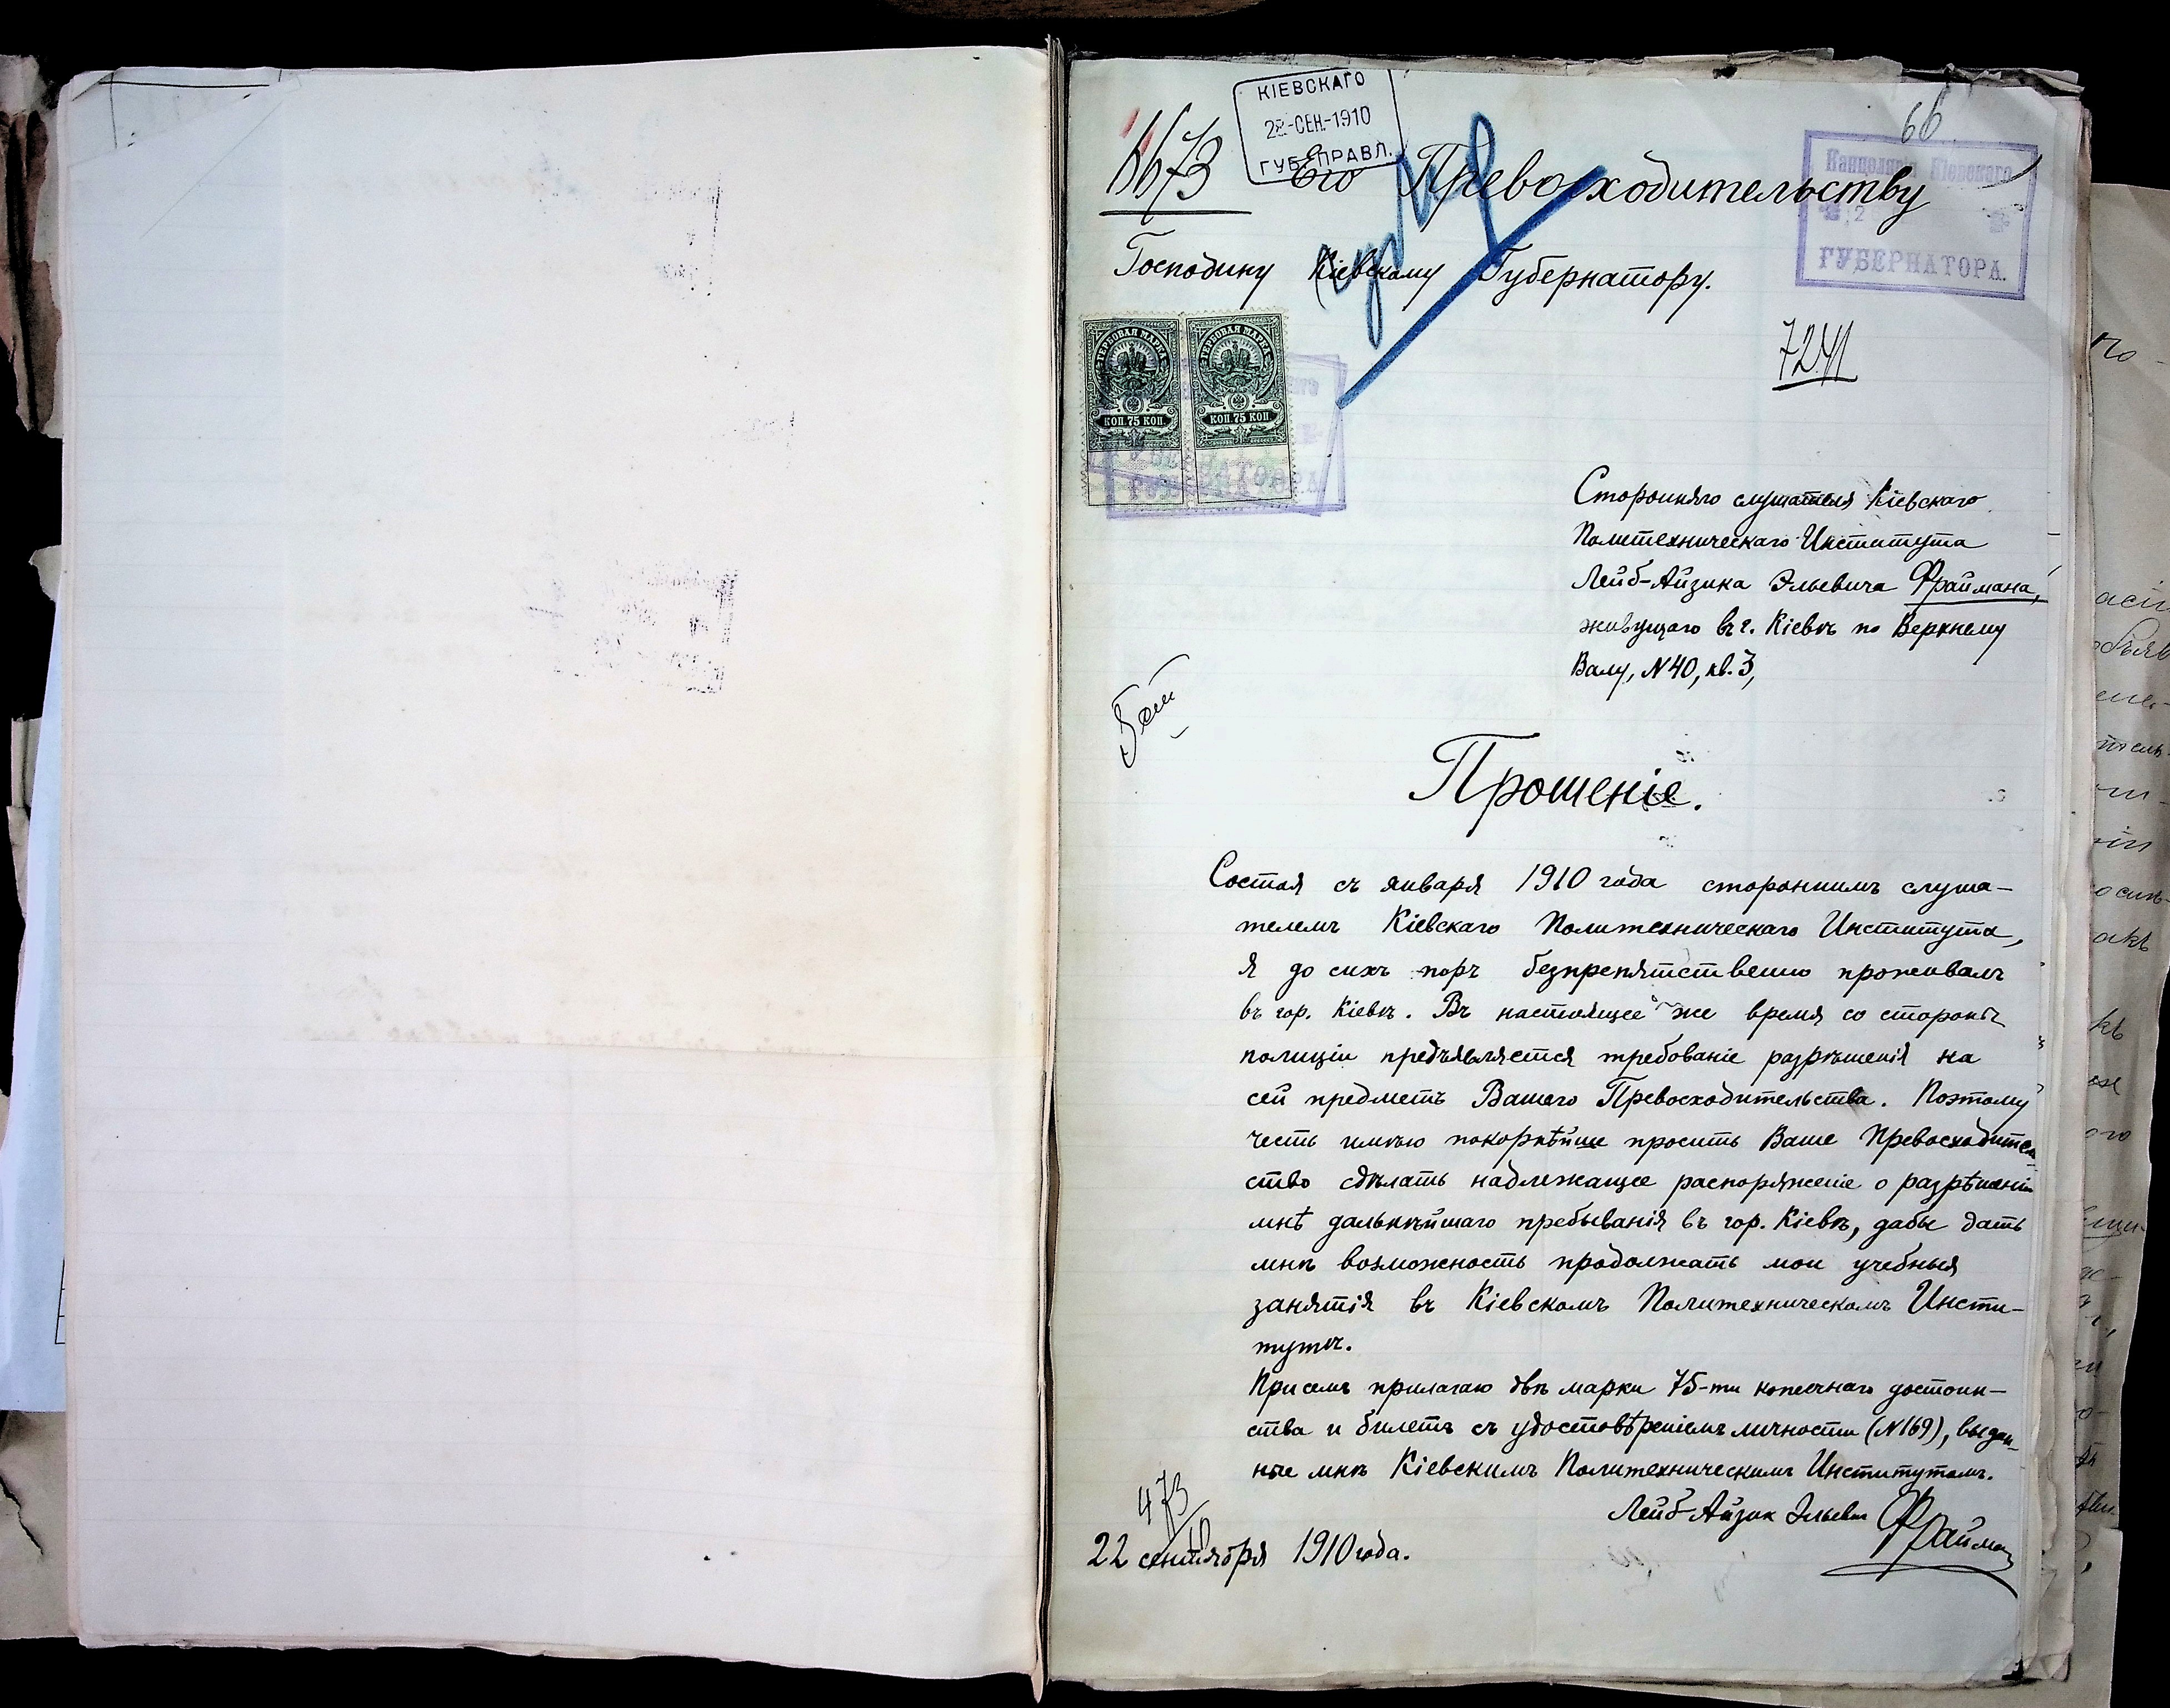 КІЕВСКАГО
22-СЕН.-1910
ГУБ. ПРАВЛ.
66
Его Превосходительству
Канцелярія Кіевского
ГУБЕРНАТОРА.
Господину Кіевскому Губернатору.
7241
ГЕРБОВАЯ МАРКА ГЕРБОВАЯ МАРКА
КОП. 75 КОП. КОП. 75 КОП.
Сторонняго слушателя Кіевскаго
Политехническаго Института
Лейб-Айзика Эльевича Фраймана,
живущаго въ г. Кіевѣ по Верхнему
Валу, N 40, кв. 3,
Прошеніе.
Состоя съ января 1910 года стороннимъ слуша-
телемъ Кіевскаго Политехническаго Института,
я до сихъ поръ безпрепятственно проживалъ
въ гор. Кіевѣ. Въ настоящее же время со стороны
полиціи предъявляется требованіе разрѣшенія на
сей предметъ Вашего Превосходительства. Поэтому
честь имѣю покорнѣйше просить Ваше Превосходитель-
ство сдѣлать надлежащее распоряженіе о разрѣшеніи
мнѣ дальнѣйшаго пребыванія въ гор. Кіевѣ, дабы дать
мнѣ возможность продолжать мои учебныя
занятія въ Кіевскомъ Политехническомъ Инсти-
тутѣ.
При семъ прилагаю двѣ марки 75-ти копеечнаго достоин-
ства и билетъ съ удостовѣреніемъ личности (N 169), выдан-
ные мнѣ Кіевскимъ Политехническимъ Институтомъ.
Лейб-Айзик Эльевич Фрайман
473
22 сентября 1910 года.